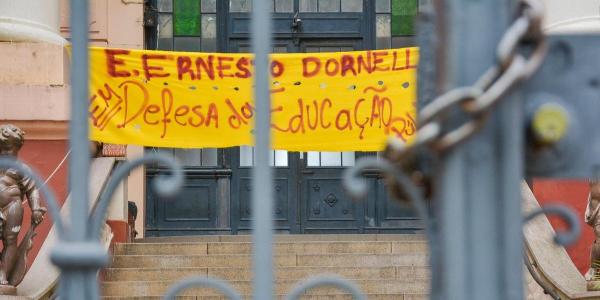 E. ERNESTO DORNELL
EM Defesa da Educação